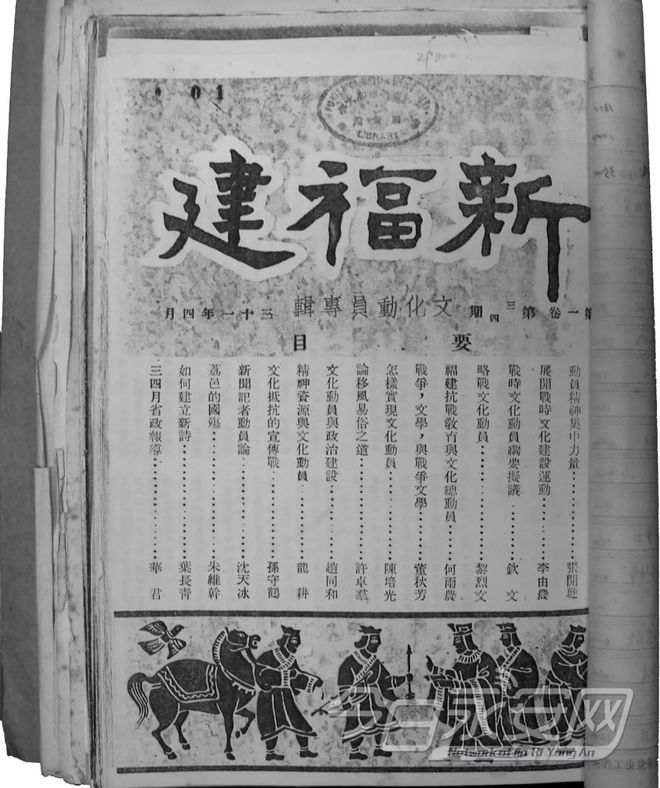 10
LIBRARY
新福建
第一卷第三四期
文化動員專輯
三十一年四月
要目
動員精神集中力量 張開璉
展開戰時文化建設運動 李由農
戰時文化動員綱要擬議 欽文
略戰文化動員 黎烈文
福建抗戰敎育與文化總動員 何雨農
戰爭，文學，與戰爭文學 董秋芳
怎樣實現文化動員 陳培光
論移風易俗之道 許卓羣
文化動員與政治建設 趙同和
精神資源與文化動員 龍耕
文化抵抗的宣傳戰 孫守鶴
新聞記者動員論 沈天冰
荔邑的國殤 朱維幹
如何建立新詩 葉長青
三四月省政報導 華君
今日永安网
Network of To Ri Yong An